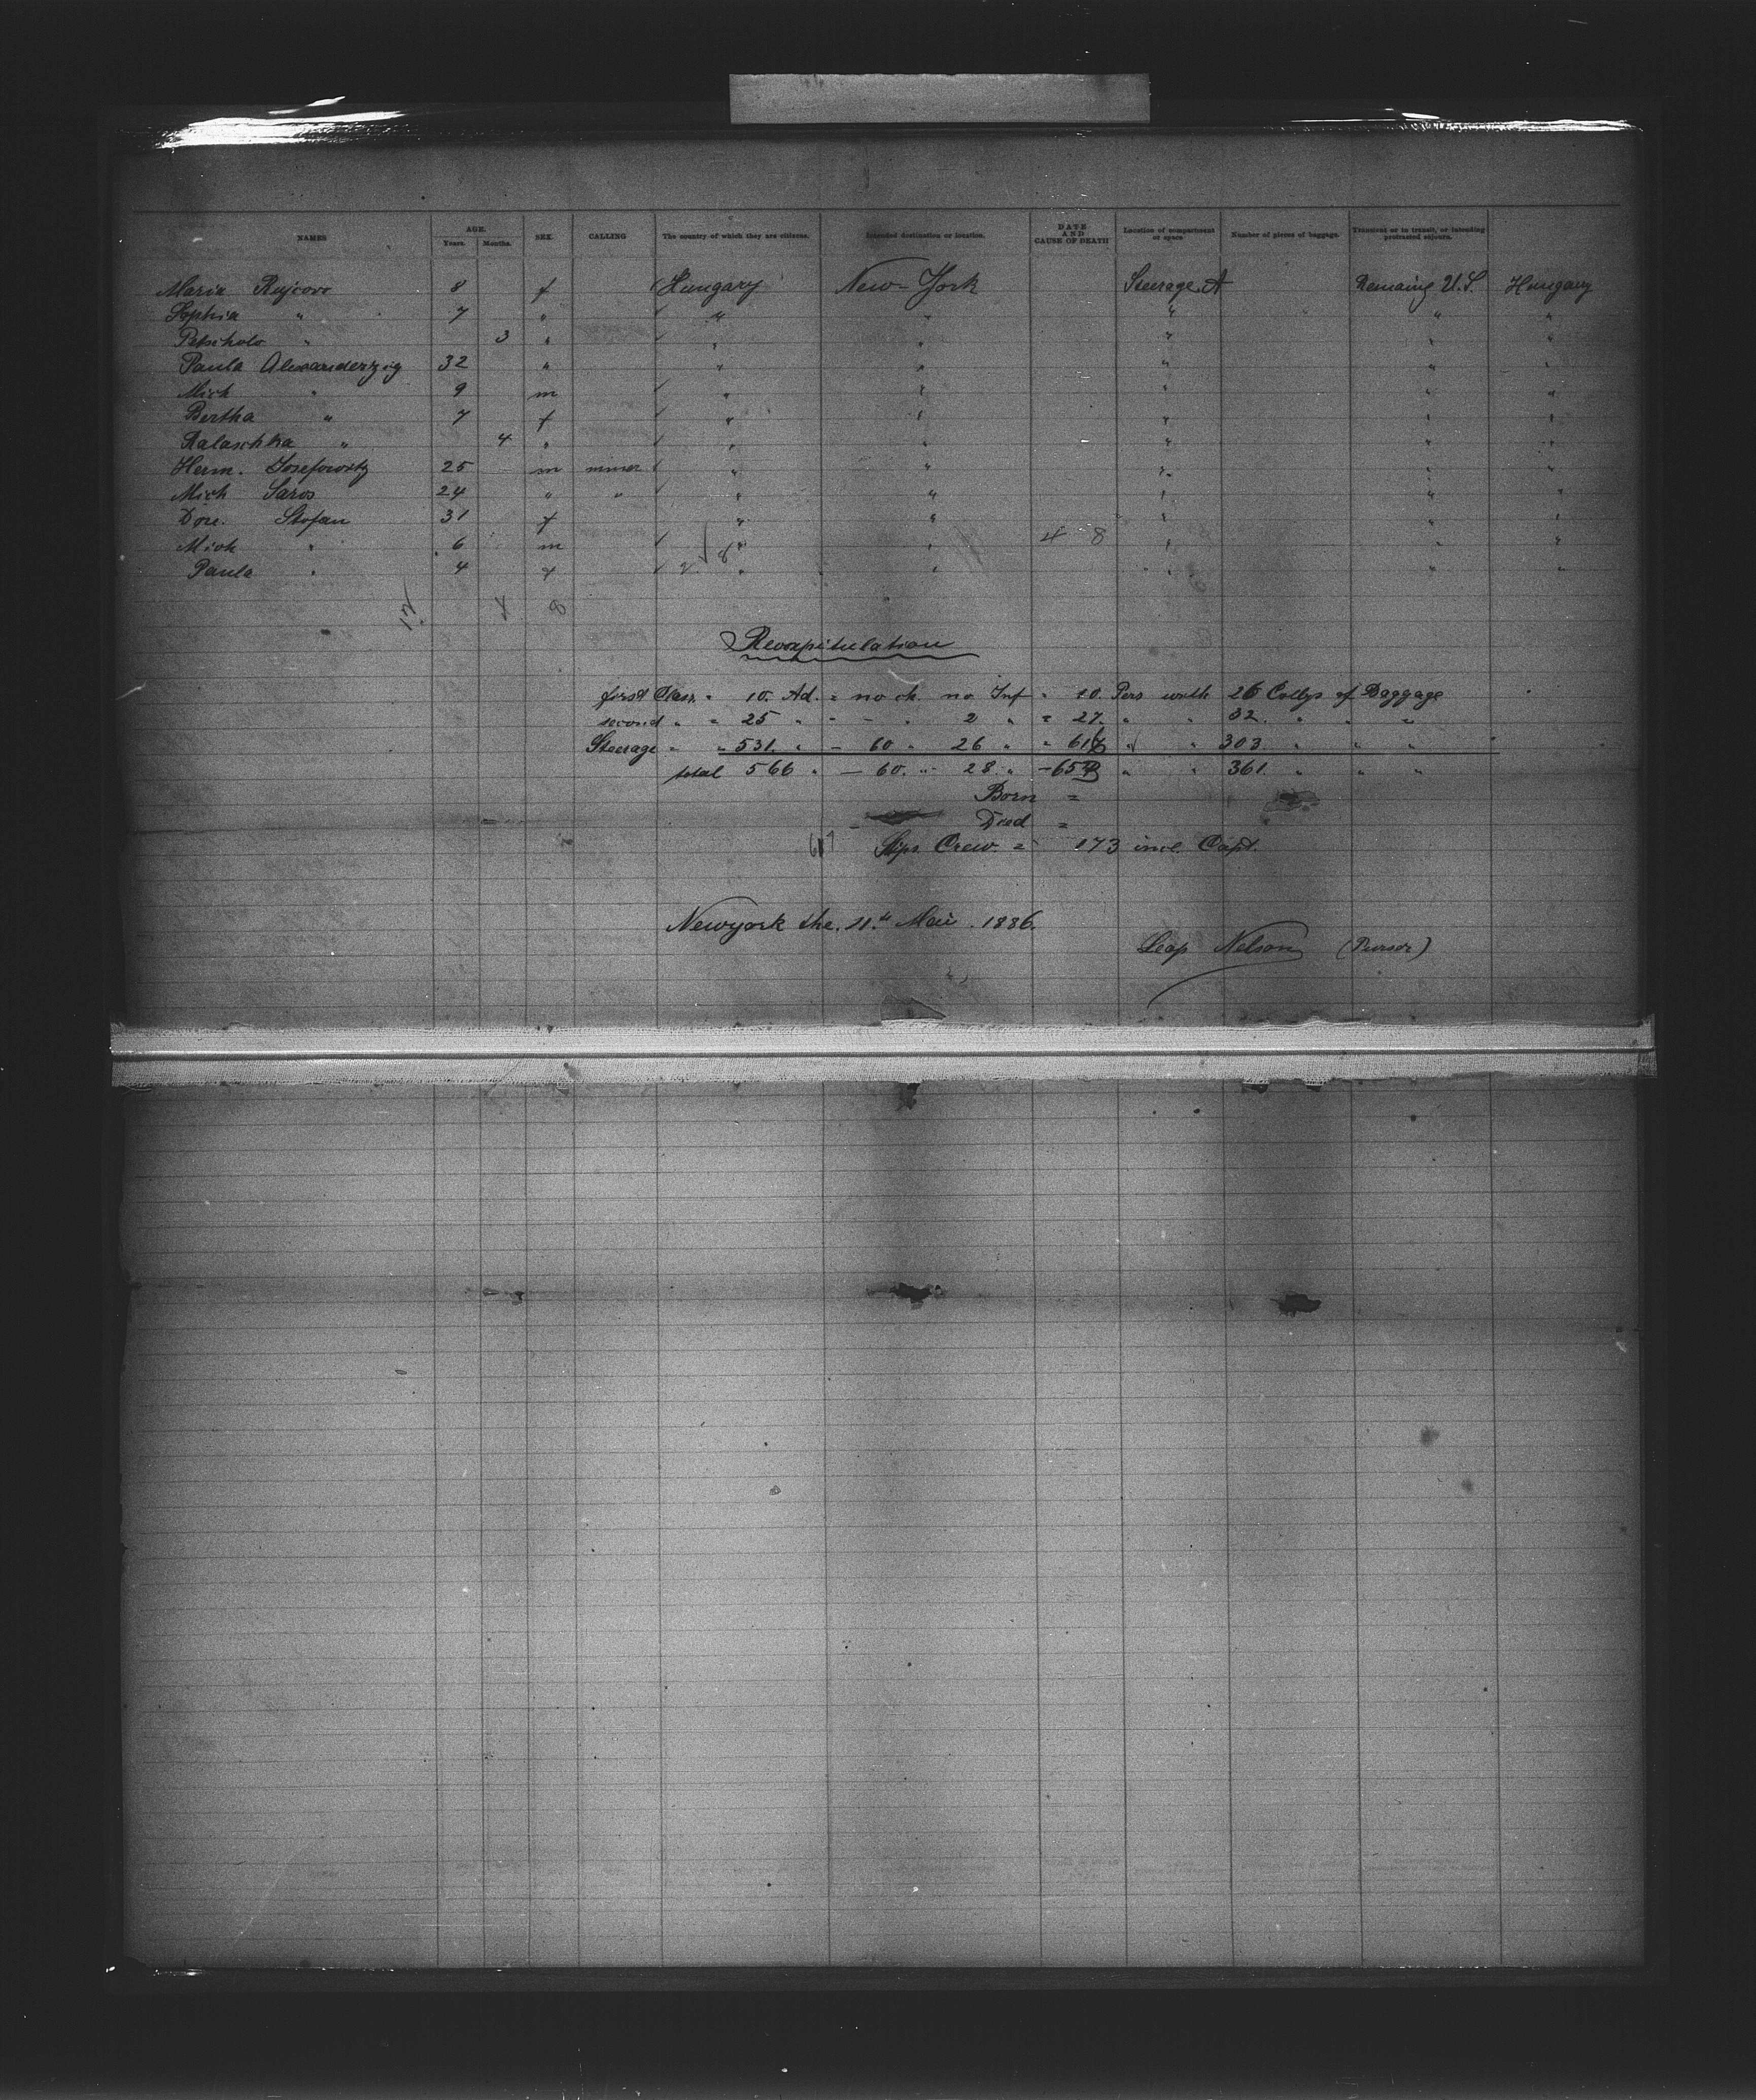 NAMES AGE. Years. Months. SEX. CALLING The country of which they are citizens. Intended destination or location. DATE AND CAUSE OF DEATH Location of compartment or space Number of pieces of baggage. Transient or in transit, or intending protracted sojourn.
Maria Rujcovo 8 f Hungary New-York Steerage A Remaing U.S. Hungary
Sophia " 7 " " " " " "
" 3 " " " " " "
Paula Alexanderzig 32 " " " " " "
Mich " 9 m " " " " "
Bertha " 7 f " " " " "
Ralaschka " 4 " " " " " "
Herm. Josefowitz 25 m miner " " " " "
Mich Saros 24 " " " " " " "
Dore. Stofan 31 f " " " " "
Mich " 6 m " " 4 8 " " "
Paula " 4 f " " " " "
12 4 8
Recapitulation
first Class. " 10. Ad. = no ch. no Inf = 10. Pers with 26 Collys of Baggage
second " = 25 " - - " 2 " = 27. " " 32. " " "
Steerage " " 531. " - 60 " 26 " " 617 " " 303. " " "
total 566 " - 60. " 28. " - 654 " " 361. " " "
Born =
Died =
617 Ships Crew. = 173 incl. Capt.
Newyork the. 11.th Mai. 1886.
Leop Nelson (Purser)